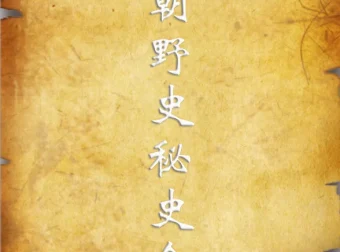 朝野史秘史